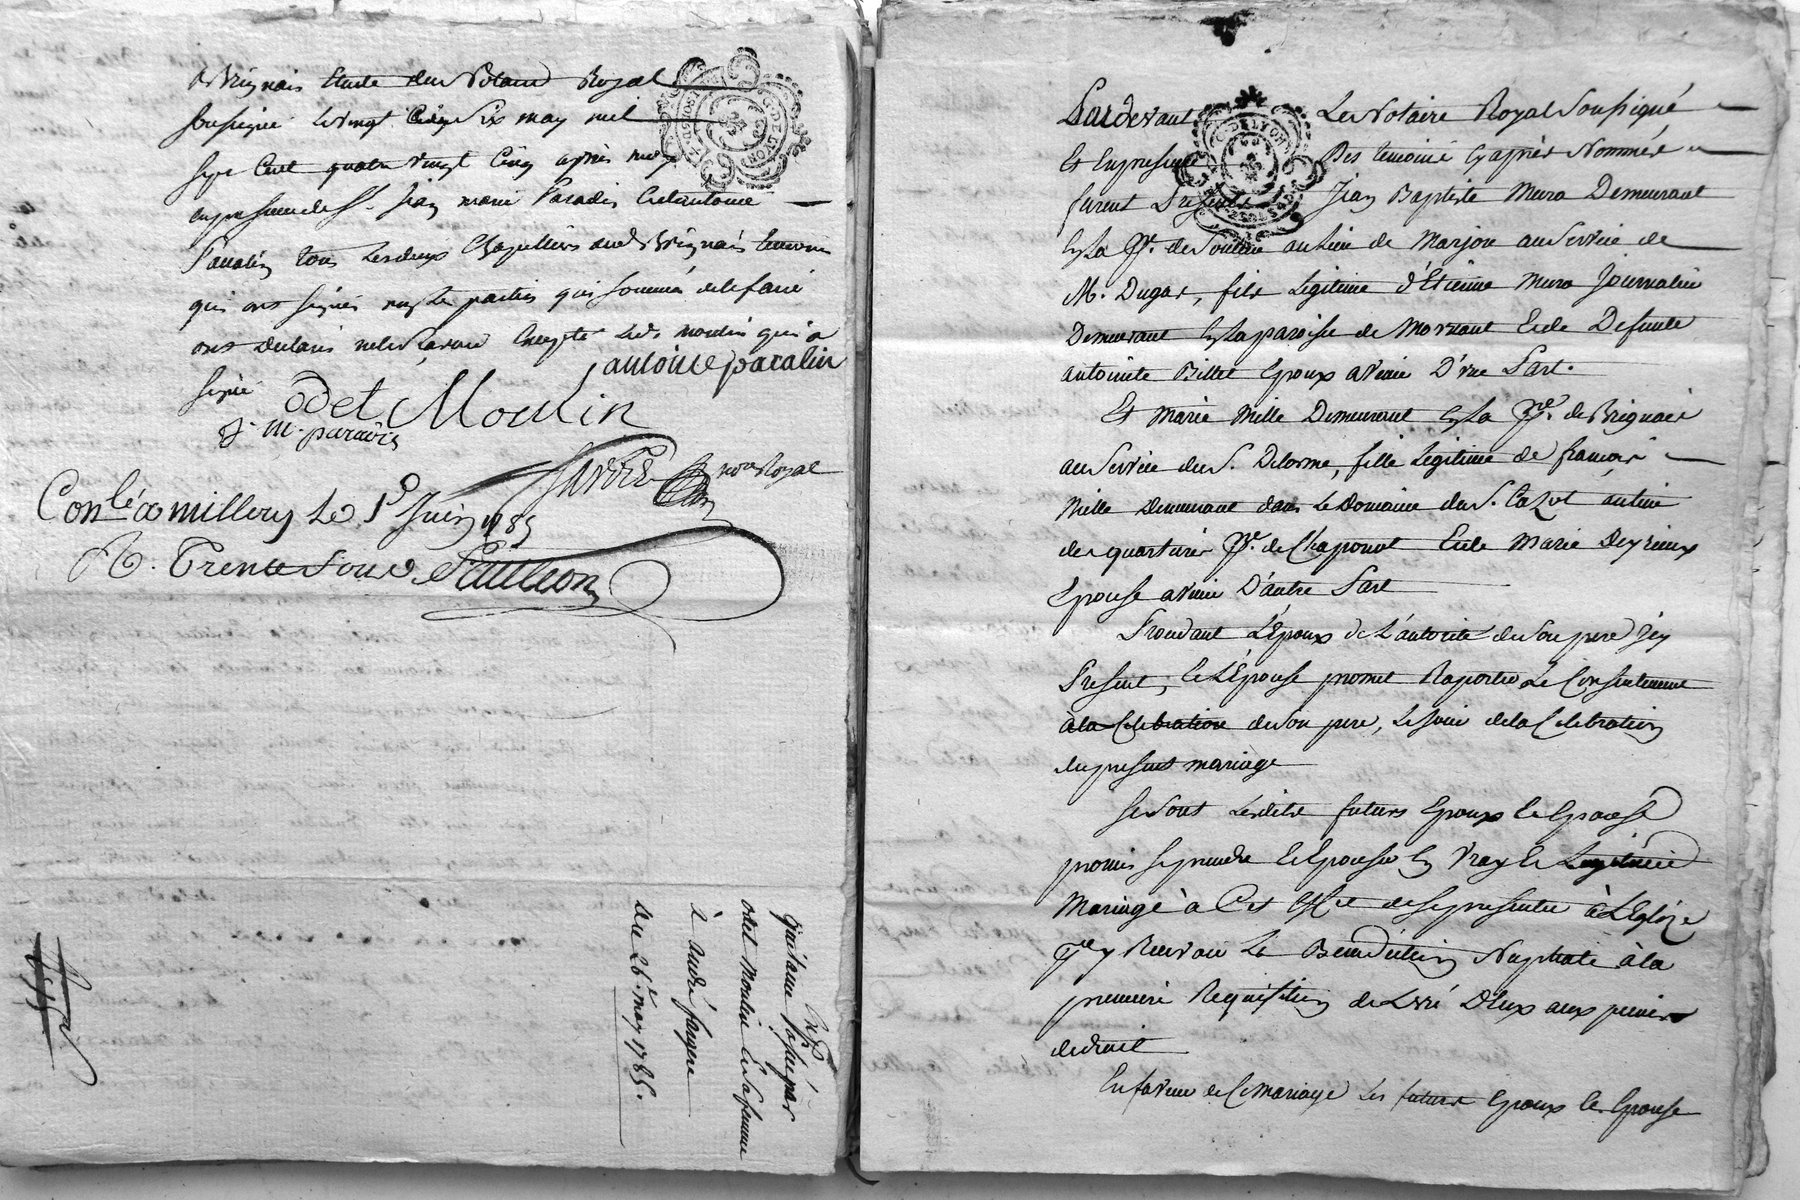 a Brignais Etude du Notaire Royal
soussigné le vingt six may mil
sept cent quatre vingt cinq après midy
en presence de Sr. Jean marie Paradis et antoine
Pacalin tous les deux Chapelliers aud. Brignais temoins
qui ont signés non les parties qui sommés de le faire
ont declarés ne le savoir Excepté led. moulin qui a
signé
antoine pacalin
odet Moulin
J. M. paradis
not.re Royal
Con.lé a millery Le 1.r Juin 1785
R. Trente Sous
Quittance passée par
odet moulin et sa femme
à André fargere
du 26.e may 1785.
Pardevant Le Notaire Royal Soussigné
Et En presence Des temoins Cy après Nommés
furent Presents Jean Baptiste Mura Demeurant
En La p.sse de Soucieu au lieu de Marjon au Service de
M. Dugas, fils Légitime d'Etienne Mura Journalier
Demeurant En la paroisse de Mornant Et de Defunte
antoinette Billet Epoux avenir D'une Part.
Et Marie Mille Demeurant En La p.sse de Brignais
au Service du S. Delorme, fille Légitime de françois
Mille Demeurant dans Le Domaine du S. Cazot
p.sse de Chaponost Et de Marie Deyrieux
Epouse avenir D'autre Part
Procedant L'Epoux de L'autorité de Son pere Icy
Present, Et L'Epouse promet Raporter Le Consentement
à la Celebration de Son pere, Le Jour de la Celebration
du present mariage
Se Sont Lesdits futurs Epoux Et Epouse
promis Se prendre Et Epouser En Vray Et Legitime
Mariage à Cet Effet de Se presenter à L'Eglize
p.r y Recevoir La Benediction Nuptiale à la
premiere Requisition de L'un D'Eux aux peines
de droit
En faveur de Ce mariage Les futurs Epoux Et Epouse